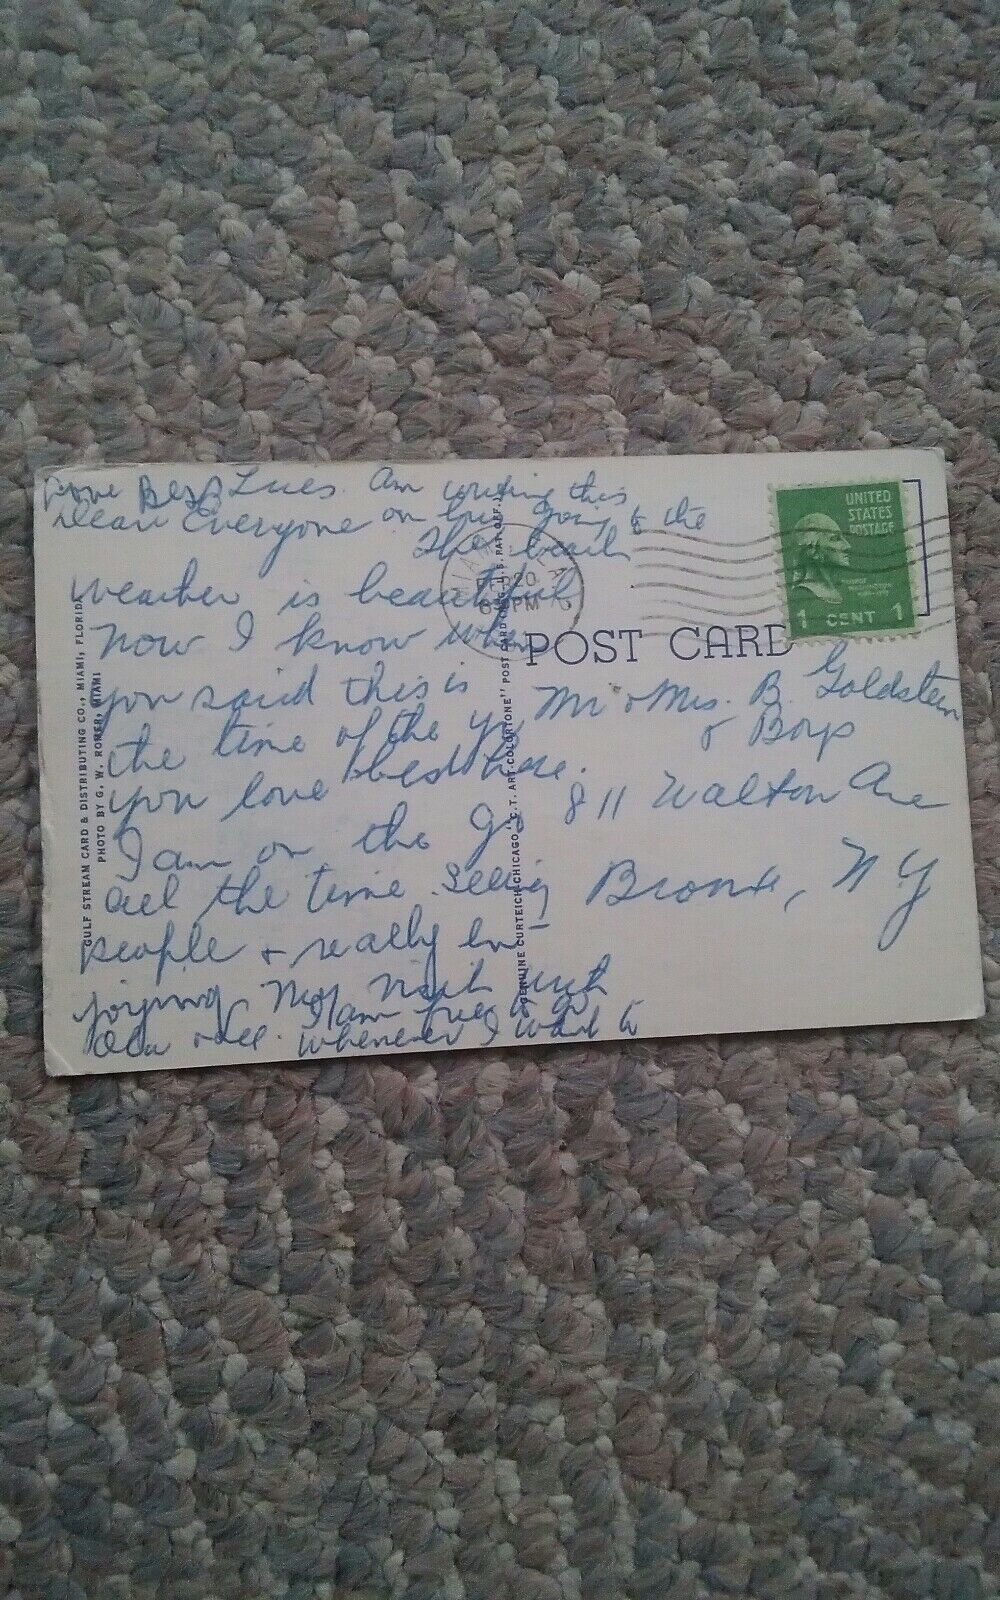 Love Bess Tues. Am writing this
Dear Everyone on bus going to the
The beach
Weather is beautiful
Now I know when
you said this is
the time of the ye
you love best here.
I am on the go
all the time. Seeing
people + really en-
joying My visit with
I am free to go
whenever I want to
GULF STREAM CARD & DISTRIBUTING CO., MIAMI, FLORIDA
PHOTO BY G. W. ROMER, MIAMI
GENUINE CURTEICH-CHICAGO "C.T. ART-COLORTONE" POST CARD (REG. U.S. PAT. OFF.)
20
PM
UNITED
STATES
POSTAGE
1 CENT 1
POST CARD
Mr & Mrs. B. Goldstein
& Boys
811 Walton Ave
Bronx, N Y